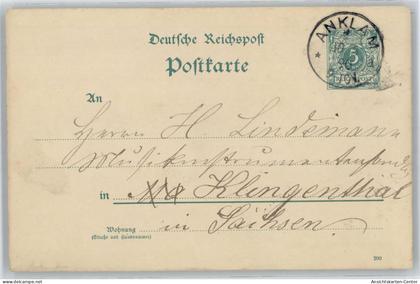 Deutsche Reichspost
Postkarte
ANKLAM
5
An
Herrn H. Lindemann
Musikinstrumenten
in Klingenthal
in Sachsen.
Wohnung
(Straße und Hausnummer)
200
www.ansichtskarten-center.de
Ansichtskarten-Center